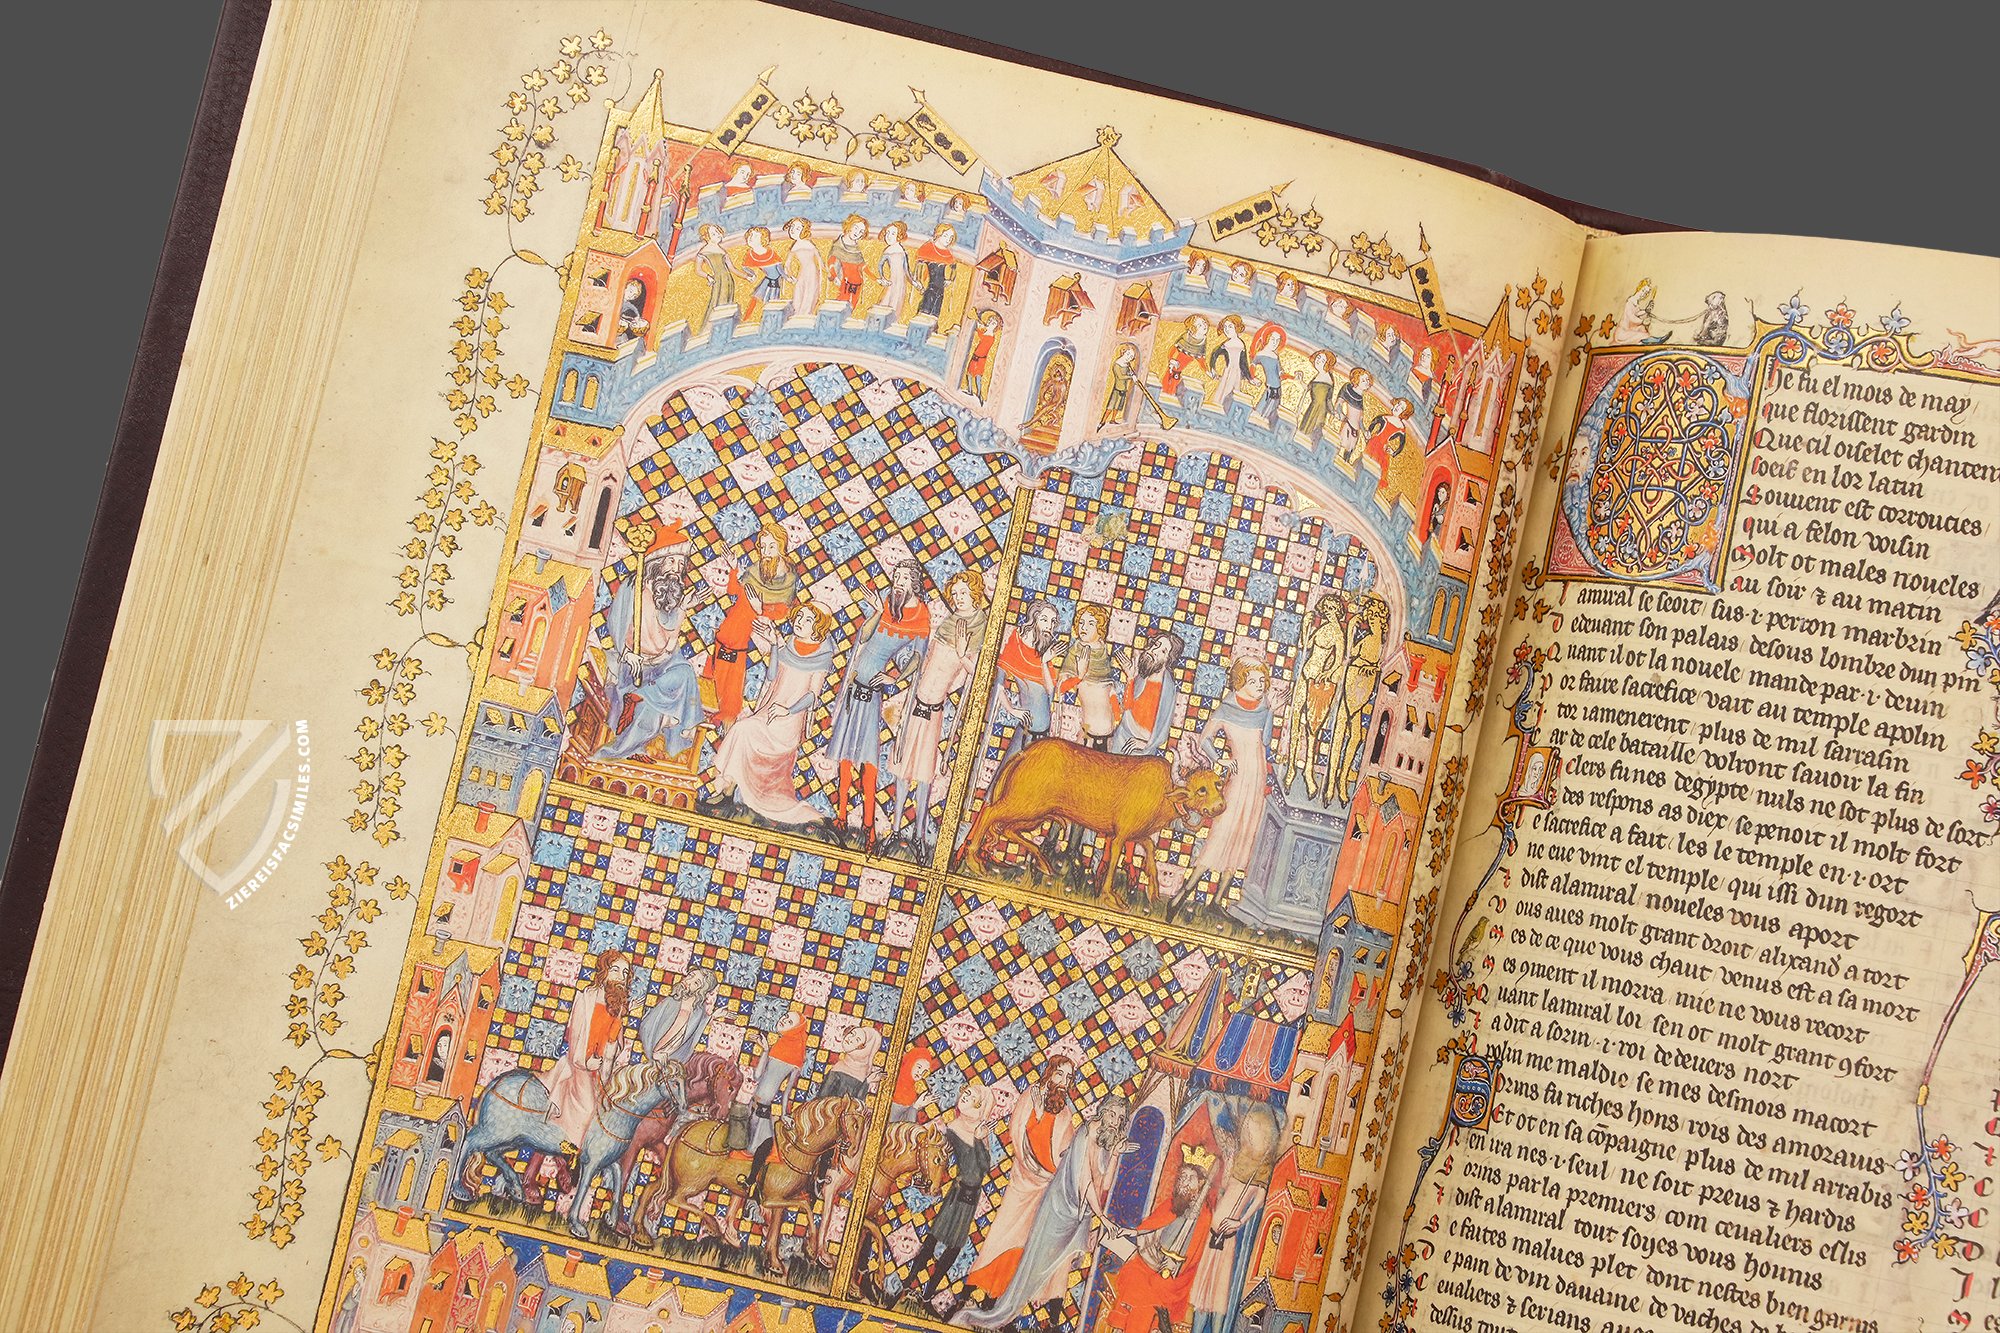 ZIEREISFACSIMILES.COM
he fu el mois de may
que florissent gardin
Que cil oiselet chantent
soef en lor latin
Souuent est corroucies
qui a felon voisin
Molt ot males noueles
au soir ⁊ au matin
amiral se seoit sus .i. perron marbrin
dedeuant son palais desous lombre dun pin
Quant il ot la nouele mande par .i. deuin
Por faire sacrefice vait au temple apolin
tor iamenerent plus de mil sarrasin
car de cele bataille volront sauoir la fin
clers fu nes degypte nuls ne sot plus de sort
des respons as diex se penoit il molt fort
e sacrefice a fait les le temple en .i. ort
ne eue vint el temple qui issi dun regort
⁊ dist alamiral noueles vous aport
vous aues molt grant droit alixandre a tort
mes de ce que vous chaut venus est a sa mort
mes 9ment il morra nue ne vous recort
Quant lamiral loi sen ot molt grant 9fort
⁊ a dit a sorin .i. roi de deuers nort
apolin me maldie se mes desmois macort
Sorins fu riches hons rois des amorauis
Et ot en sa cōpaignie plus de mil arrabis
Nen ira nes .i. seul ne soit preus ⁊ hardis
Sorins parla premiers com ceualiers eslis
⁊ dist alamiral tout soyes vous hounis
Se faites malues plet dont nestes bien garnis
De pain de vin dauaine de vaches de
Ceualiers ⁊ serians
dessus tout